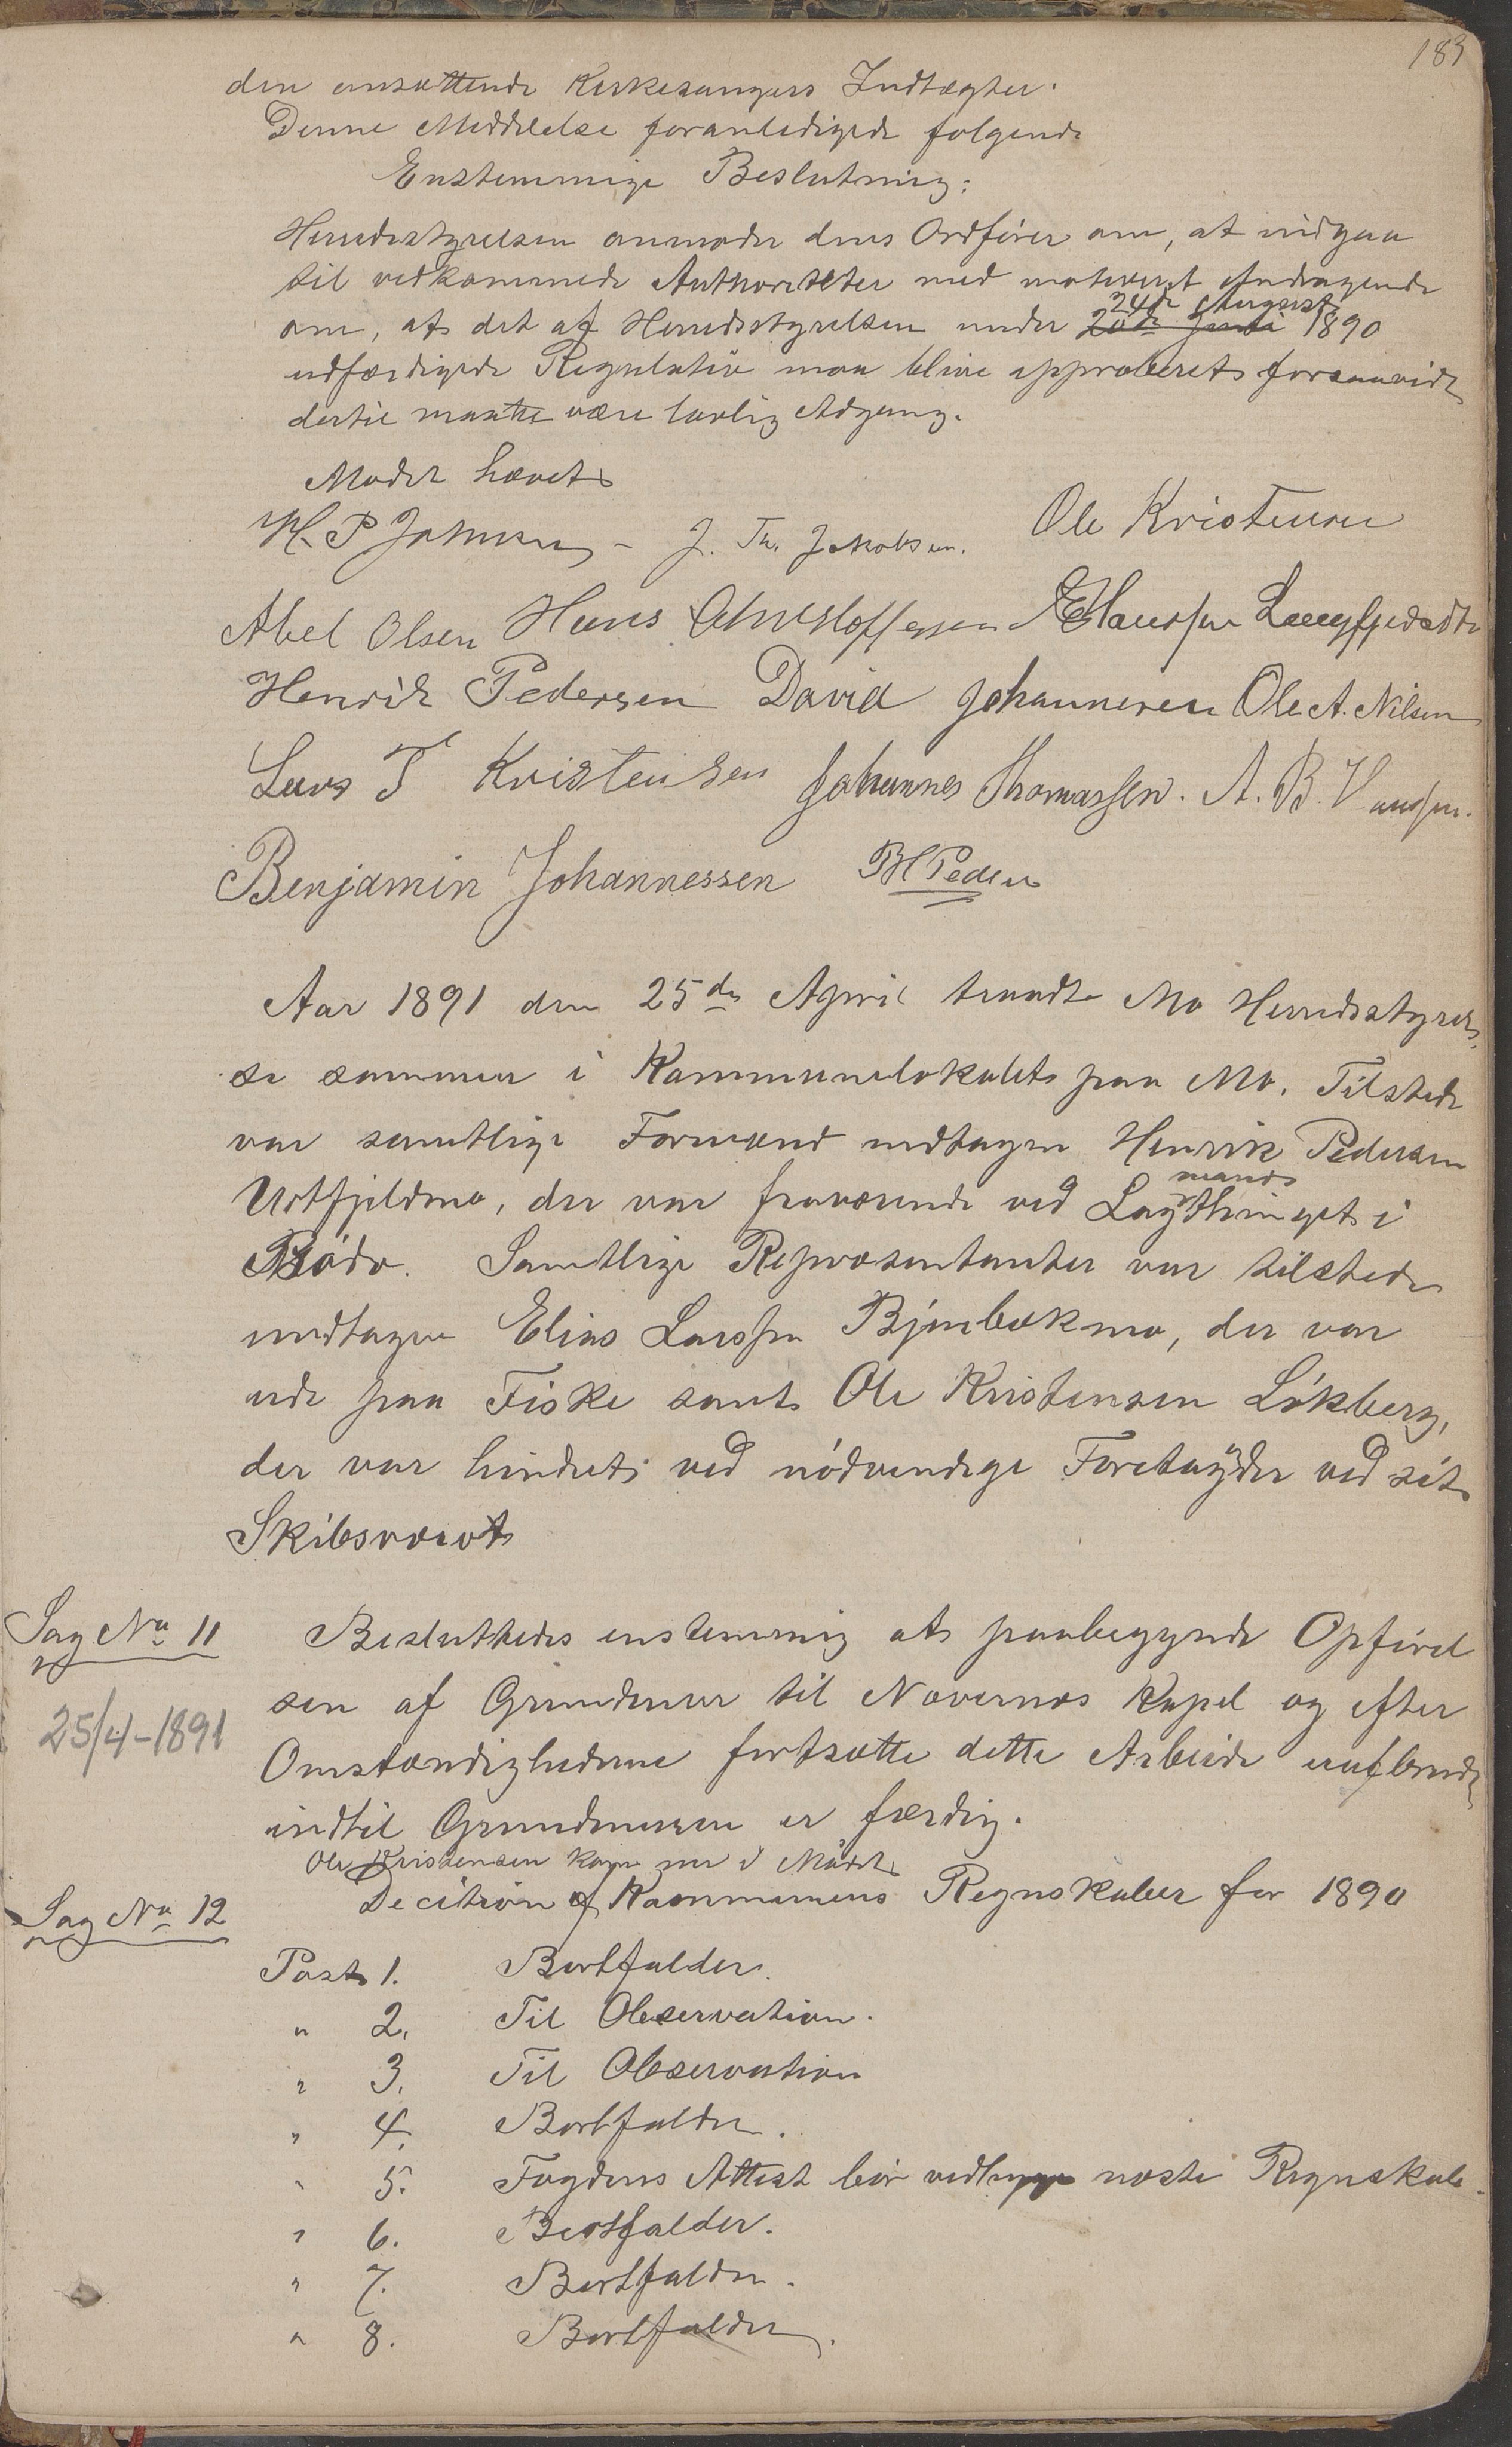 183
den ansættende Kirkesangers Indtægter.
Denne Meddelelse foranledigede følgende
Enstemmige Beslutning:
Herredsstyrelsen anmoder dens Ordfører om, at indgaa
til vedkommende Authoriteter med motiveret Andragende
24de August
om, at det af Herredsstyrelsen under 20de Juni 1890
udfærdigede Regulativ maa blive approberet forsaavidt
dertil maatte være lovlig Adgang.
Mødet hævet
H. P Johnsen - J. Th. Jakobsen. Ole Kristensen
Abel Olsen Hans Christoffersen E Hanssen Langfjeldt
Henrik Pedersen David Johannesen Ole A. Nilsen
Lars T Kristensen Johannes Thomassen. A. B. Hanssen.
Benjamin Johannessen PH Peders
Aar 1891 den 25de April traadte Mo Herredsstyrel-
se sammen i Kommunelokalet paa Mo. Tilstede
var samtlige Formænd undtagen Henrik Pedersen
mands
Urtfjeldmo, der var fraværende ved Lagthinget i
Bødø. Samtlige Repræsentanter var tilstede
undtagen Elias Larssen Bjørbækmo, der var
ude paa Fiske samt Ole Kristensen Løkberg,
der var hindret ved nødvendige Foretagder ved sit
Skibsværvt
Sag No 11
Besluttedes enstemmig at paabegynde Opførel
sen af Grundmur til Nævernæs Kapel og efter
25/4-1891
Omstændighederne fortsætte dette Arbeide uafbrudt
indtil Grundmuren er færdig.
Ole Kristensen kom nu i Mødet
Sag No 12
Decition af Kommunens Regnskaber for 1890
Post 1. Bortfalder.
" 2. Til Observation.
" 3. Til Observation
" 4. Bortfalder.
" 5. Fogdens Attest bør vedlægge næste Regnskab.
" 6. Bortfalder.
" 7. Bortfalder.
" 8. Bortfalder.